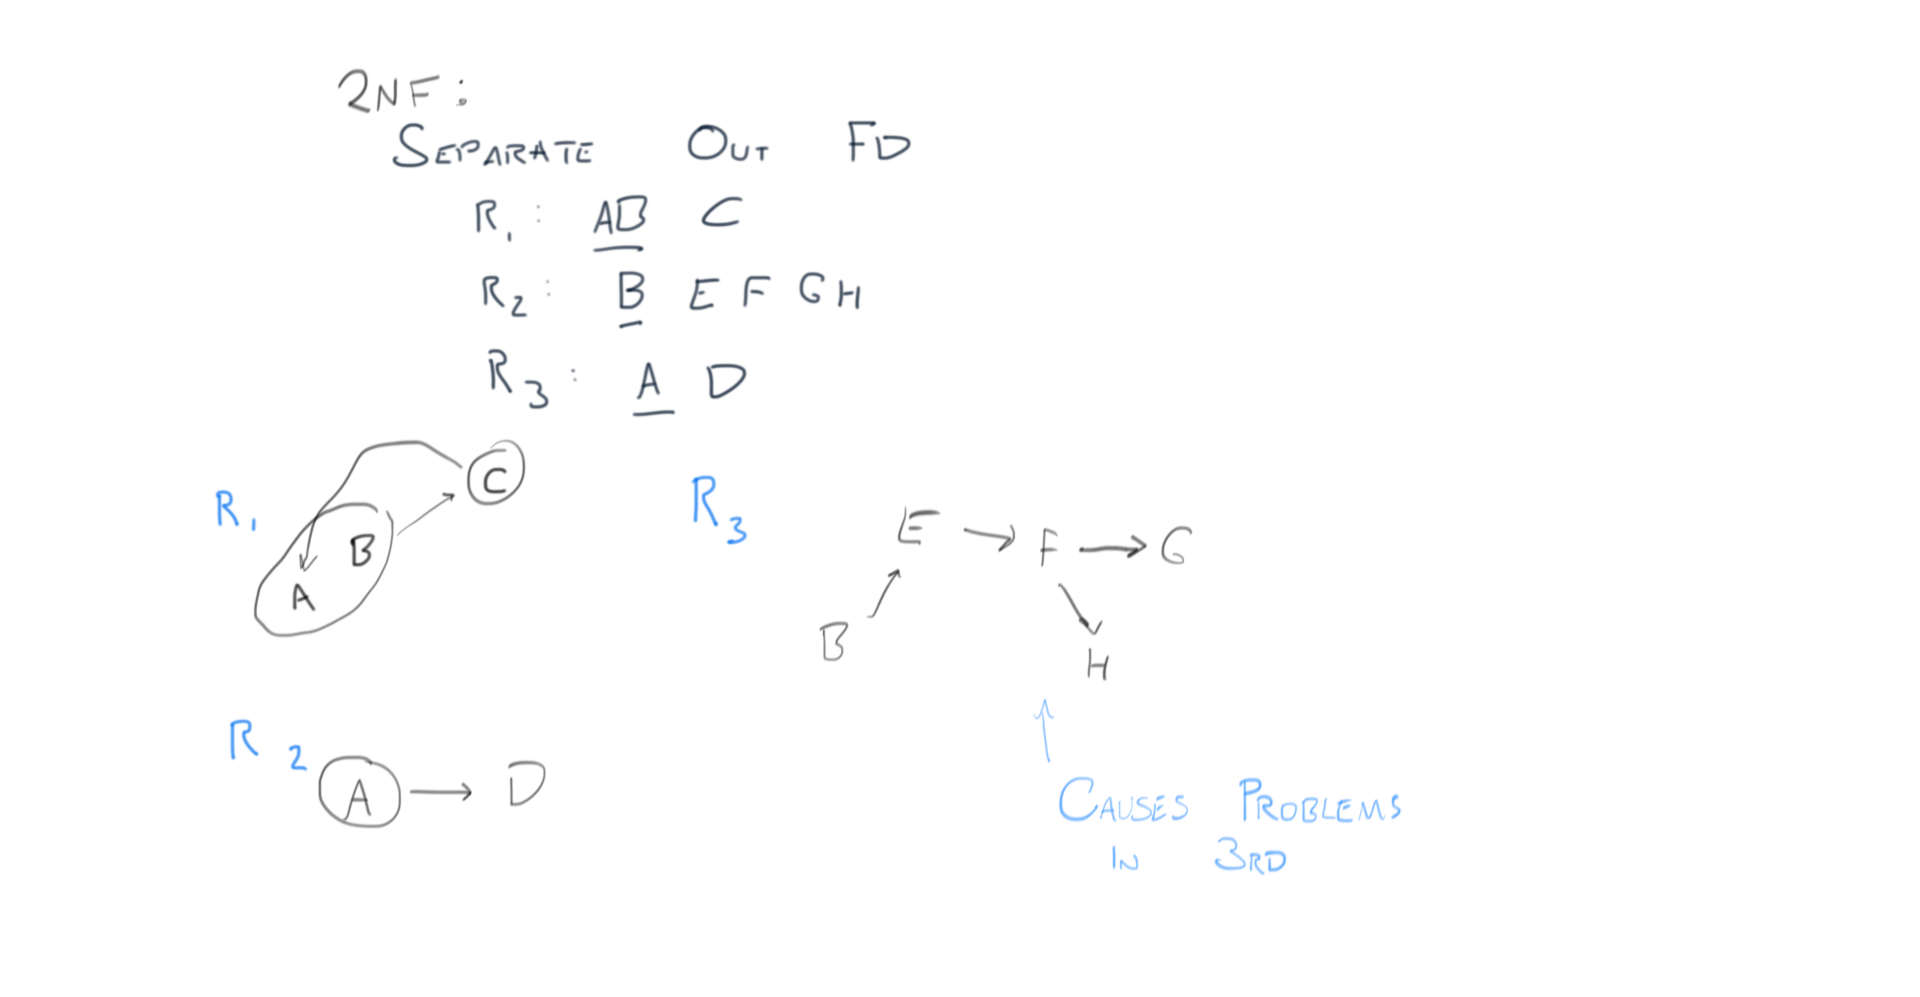 2NF:
SEPARATE OUT FD
R1: AB C
R2: B E F G H
R3: A D
R1
C
B
A
R3
E F G
B
H
R2
A D
CAUSES PROBLEMS
IN 3RD